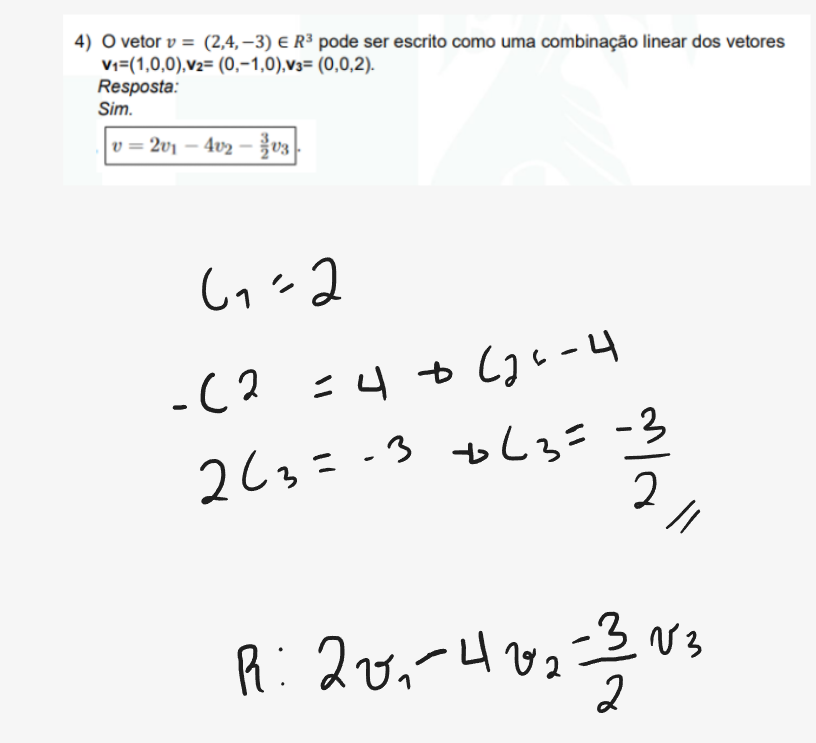 4) O vetor v = (2,4,−3) ∈ R³ pode ser escrito como uma combinação linear dos vetores
v₁=(1,0,0),v₂= (0,−1,0),v₃= (0,0,2).
Resposta:
Sim.
v = 2v₁ − 4v₂ − 3/2 v₃.
C₁ = 2
-C2 = 4 → C₂ = -4
2C₃ = -3 → C₃ = -3/2 //
R: 2v₁ - 4v₂ -3/2 v₃